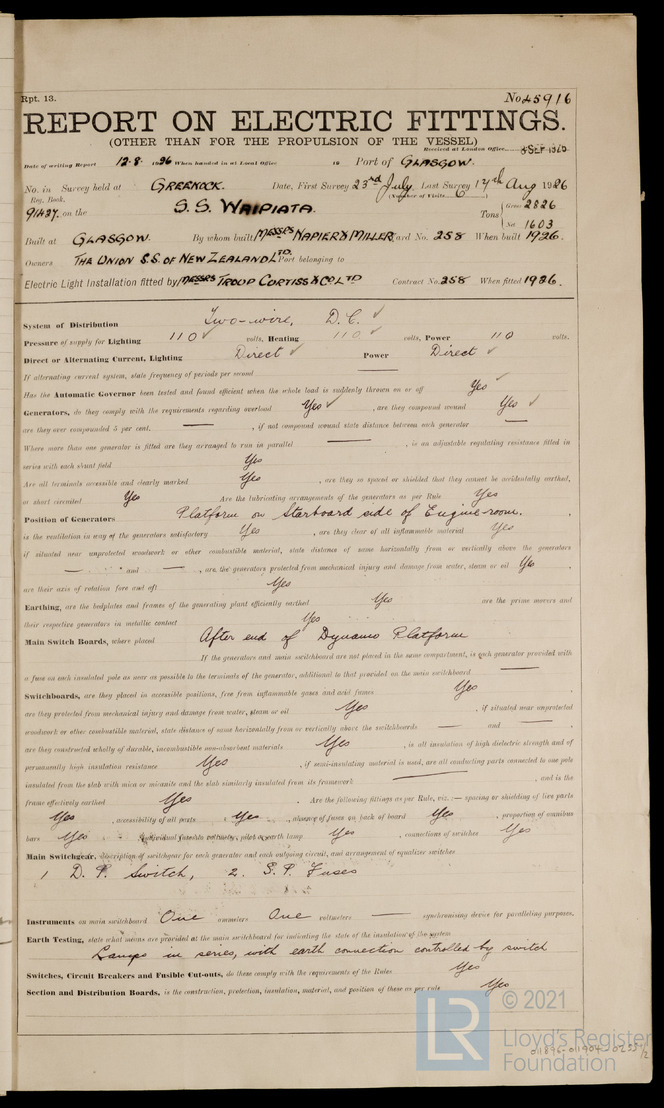 Rpt. 13. No 45916
REPORT ON ELECTRIC FITTINGS.
(OTHER THAN FOR THE PROPULSION OF THE VESSEL)
Received at London Office
Date of writing Report 12.8. 1926 When handed in at Local Office 19 Port of GLASGOW.
No. in Survey held at GREENOCK. Date, First Survey 23rd July Last Survey 17th Aug 1926
Reg. Book. (Number of Visits 6)
91437. on the S.S. WAIPIATA. Tons { Gross 2826
Net 1603
Built at GLASGOW. By whom built MESSRS NAPIER & MILLER Yard No. 258 When built 1926.
Owners THE UNION S.S. OF NEW ZEALAND LTD. Port belonging to
Electric Light Installation fitted by MESSRS TROUP CURTISS & CO LTD Contract No. 258 When fitted 1926.
System of Distribution Two-wire, D.C. ✓
Pressure of supply for Lighting 110 ✓ volts, Heating 110 ✓ volts, Power 110 volts.
Direct or Alternating Current, Lighting Direct ✓ Power Direct ✓
If alternating current system, state frequency of periods per second —
Has the Automatic Governor been tested and found efficient when the whole load is suddenly thrown on or off Yes ✓
Generators, do they comply with the requirements regarding overload Yes ✓, are they compound wound Yes ✓
are they over compounded 5 per cent. —, if not compound wound state distance between each generator —
Where more than one generator is fitted are they arranged to run in parallel —, is an adjustable regulating resistance fitted in
series with each shunt field Yes
Are all terminals accessible and clearly marked Yes, are they so spaced or shielded that they cannot be accidentally earthed,
or short circuited Yes Are the lubricating arrangements of the generators as per Rule Yes
Position of Generators Platform on Starboard side of Engine room.
is the ventilation in way of the generators satisfactory Yes, are they clear of all inflammable material Yes
if situated near unprotected woodwork or other combustible material, state distance of same horizontally from or vertically above the generators
— and —, are the generators protected from mechanical injury and damage from water, steam or oil Yes,
are their axis of rotation fore and aft Yes
Earthing, are the bedplates and frames of the generating plant efficiently earthed Yes are the prime movers and
their respective generators in metallic contact Yes
Main Switch Boards, where placed After end of Dynamo Platform
If the generators and main switchboard are not placed in the same compartment, is each generator provided with
a fuse on each insulated pole as near as possible to the terminals of the generator, additional to that provided on the main switchboard —
Switchboards, are they placed in accessible positions, free from inflammable gases and acid fumes Yes,
are they protected from mechanical injury and damage from water, steam or oil Yes, if situated near unprotected
woodwork or other combustible material, state distance of same horizontally from or vertically above the switchboards — and —,
are they constructed wholly of durable, incombustible non-absorbent materials Yes, is all insulation of high dielectric strength and of
permanently high insulation resistance Yes, if semi-insulating material is used, are all conducting parts connected to one pole
insulated from the slab with mica or micanite and the slab similarly insulated from its framework —, and is the
frame effectively earthed Yes. Are the following fittings as per Rule, viz.:— spacing or shielding of live parts
Yes, accessibility of all parts Yes, absence of fuses on back of board Yes, proportion of omnibus
bars Yes, individual fuses to voltmeter, pilot or earth lamp Yes, connections of switches Yes
Main Switchgear, description of switchgear for each generator and each outgoing circuit, and arrangement of equalizer switches
1 D. P. Switch, 2. S. P. Fuses
Instruments on main switchboard One ammeters One voltmeters — synchronising device for paralleling purposes.
Earth Testing, state what means are provided at the main switchboard for indicating the state of the insulation of the system
Lamps in series, with earth connection controlled by switch
Switches, Circuit Breakers and Fusible Cut-outs, do these comply with the requirements of the Rules Yes
Section and Distribution Boards, is the construction, protection, insulation, material, and position of these as per rule Yes
LR
© 2021
Lloyd's Register
Foundation